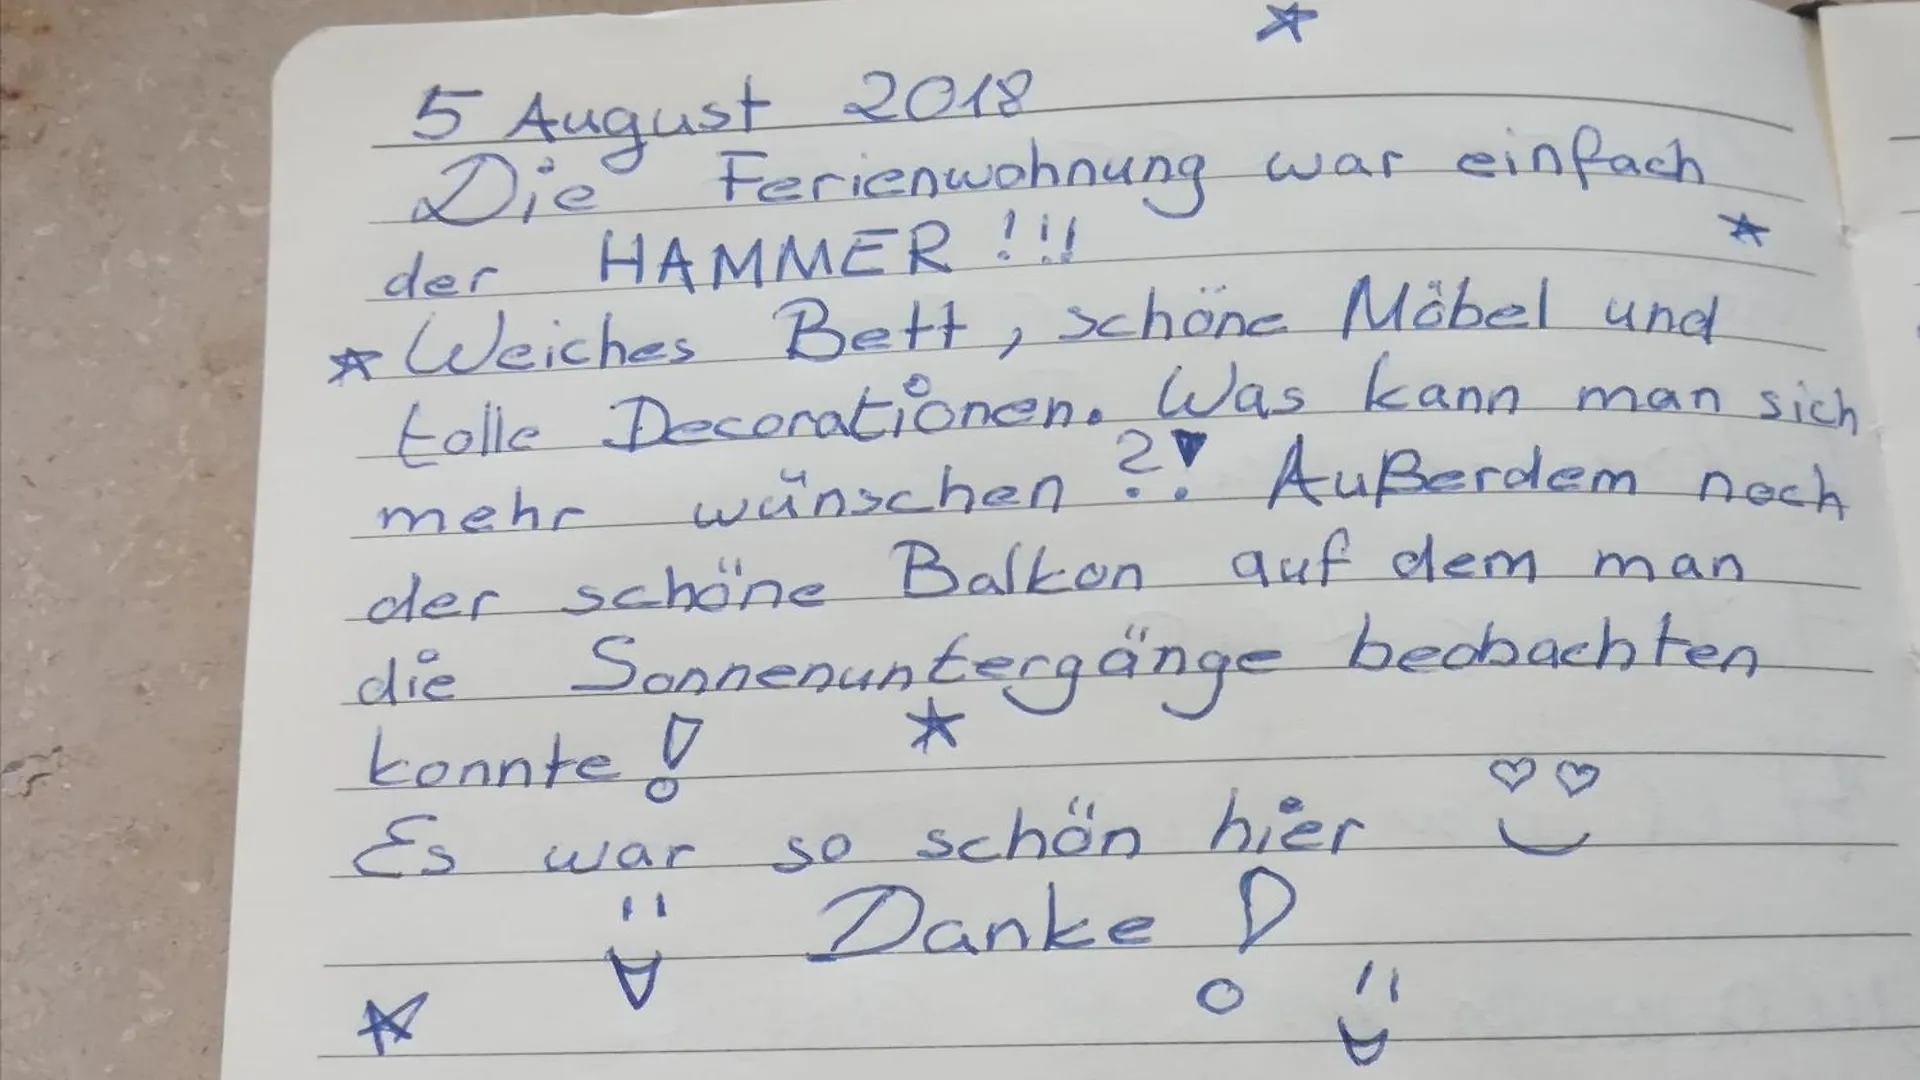 5 August 2018
Die Ferienwohnung war einfach
der HAMMER !!!
Weiches Bett, schöne Möbel und
tolle Decorationen. Was kann man sich
mehr wünschen ?! Außerdem noch
der schöne Balkon auf dem man
die Sonnenuntergänge beobachten
konnte!
Es war so schön hier
Danke !